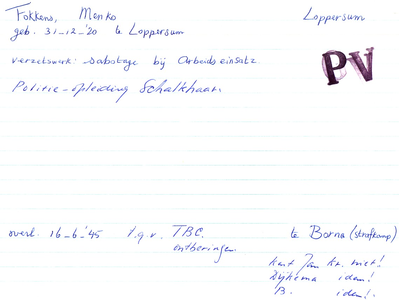 Fokkens, Menko Loppersum
geb. 31-12-'20 te Loppersum
PV
verzetswerk: sabotage bij Arbeidseinsatz
Politie-opleiding Schalkhaar.
overl. 16-6-'45 t.g.v. TBC. te Borna (strafkamp)
ontberingen.
kent Jan Kr. niet!
Dijkema idem!
B. idem!